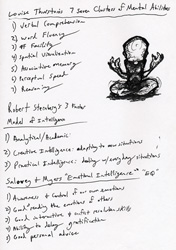 Louise Thurstone's 7 Seven Clusters of Mental Abilities
1) Verbal Comprehension
2) Word fluency
3) # Facility
4) Spatial Visualization
5) Associative memory
6) Perceptual Speed
7) Reasoning
Robert Sternberg's 3 Factor
Model of Intelligence
1) Analytical/Academic
2) Creative Intelligence: adapting to new situations
3) Practical Intelligence: dealing w/ everyday situations
Salovey + Mayers "Emotional Intelligence" "EQ"
1) Awareness + Control of our own emotions
2) Good reading the emotions of others
3) Good alternative + conflict resolution skills
4) Ability to delay gratification
5) Good personal advice